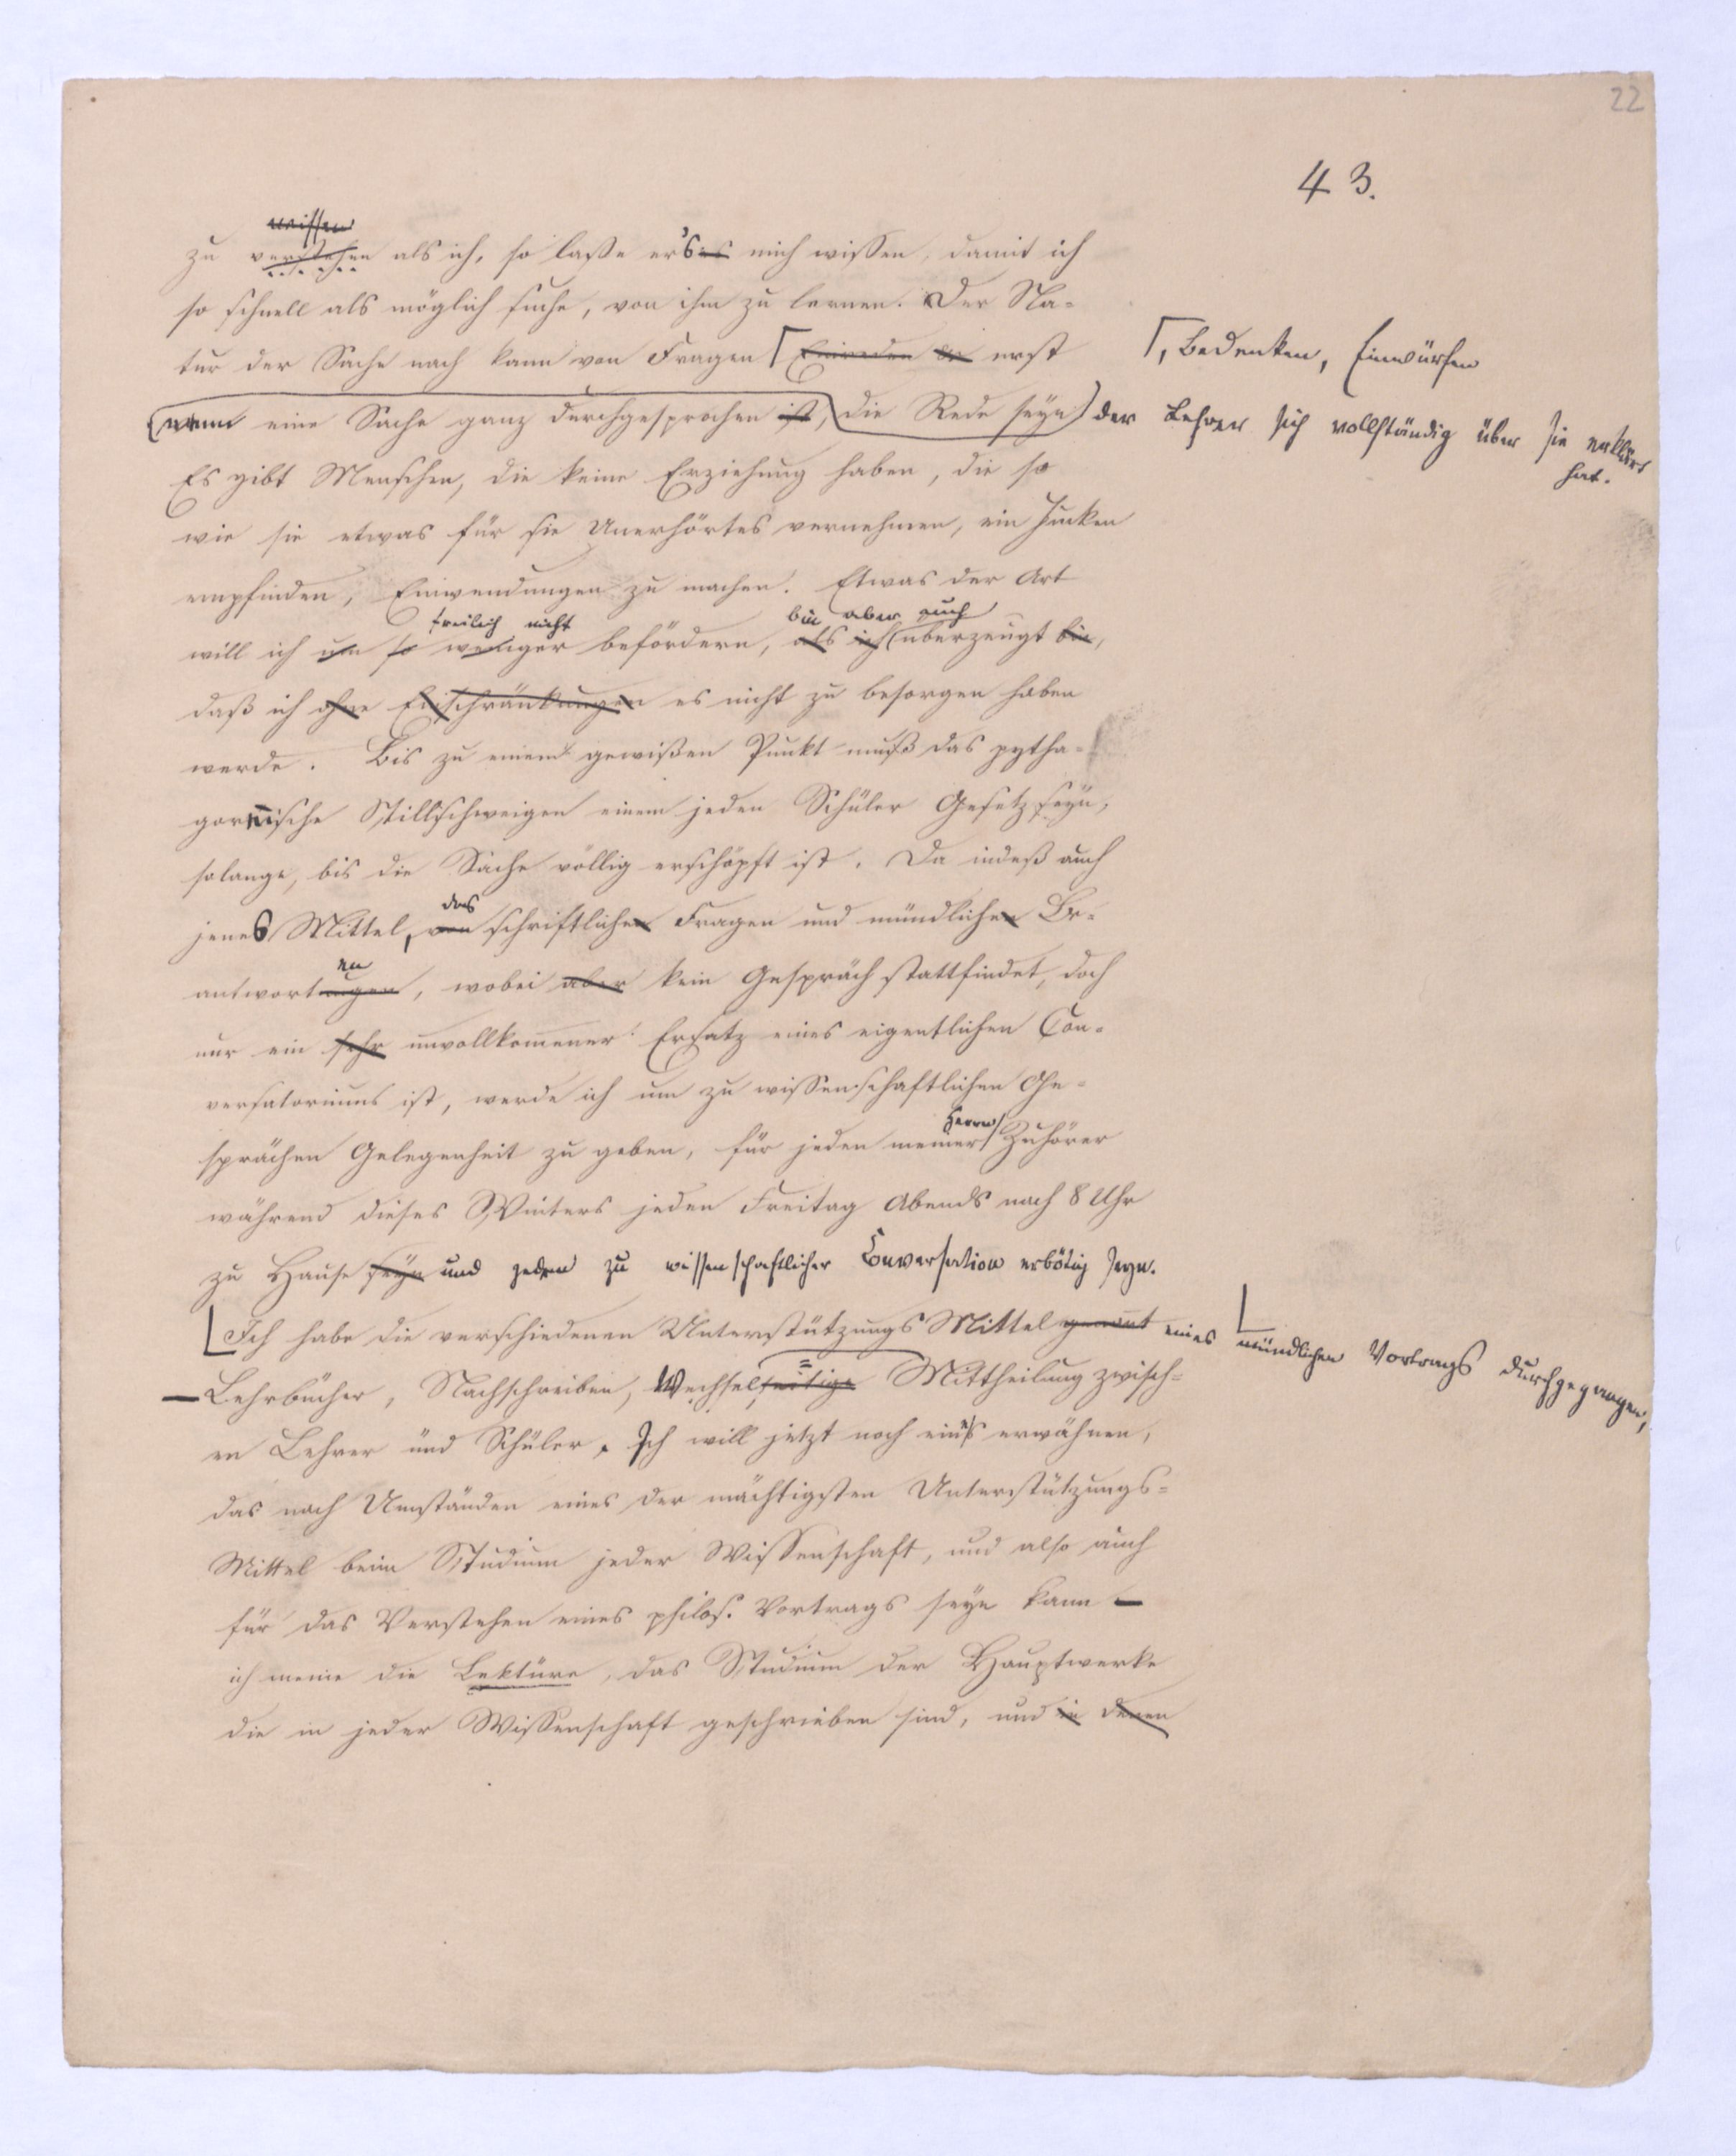 22
43.
wissen
zu verstehen als ich, so laße er's es mich wissen, damit ich
so schnell als möglich suche, von ihm zu lernen. Der Na-
tur der Sache nach kann von Fragen Einreden erst
, Bedenken, Einwürfen
wenn eine Sache ganz durchgesprochen ist, die Rede seyn der Lehrer sich vollständig über sie erklärt
hat.
Es gibt Menschen, die keine Erziehung haben, die so
wie sie etwas für sie Unerhörtes vernehmen, ein Jucken
empfinden, Einwendungen zu machen. Etwas der Art
freilich nicht bin aber auch
will ich um so weniger befördern, als ich überzeugt bin,
daß ich ohne Einschränkungen es nicht zu besorgen haben
werde. Bis zu einem gewißen Punkt muß das pytha-
goreische Stillschweigen einem jeden Schüler Gesetz seyn,
solange, bis die Sache völlig erschöpft ist. Da indeß auch
das
jenes Mittel, von schriftlichen Fragen und mündlichen Be-
en
antwortungen, wobei aber kein Gespräch stattfindet, doch
nur ein sehr unvollkomener Ersatz eines eigentlichen Con-
versatoriums ist, werde ich um zu wissenschaftlichen Ge-
Herrn
sprächen Gelegenheit zu geben, für jeden meiner Zuhörer
während dieses Winters jeden Freitag Abends nach 8 Uhr
zu Hause seyn und jedem zu wissenschaftlicher Conversation erbötig seyn.
Ich habe die verschiedenen Unterstützungs Mittel genannt eines mündlichen Vortrags durchgegangen,
– Lehrbücher, Nachschreiben, Wechselseitige Mittheilung zwisch-
en Lehrer und Schüler. Ich will jetzt noch eines erwähnen,
das nach Umständen eines der mächtigsten Unterstützungs-
Mittel beim Studium jeder Wissenschaft, und also auch
für das Verstehen eines philos. Vortrags seyn kann –
ich meine die Lektüre, das Studium der Hauptwerke
die in jeder Wissenschaft geschrieben sind, und in denen